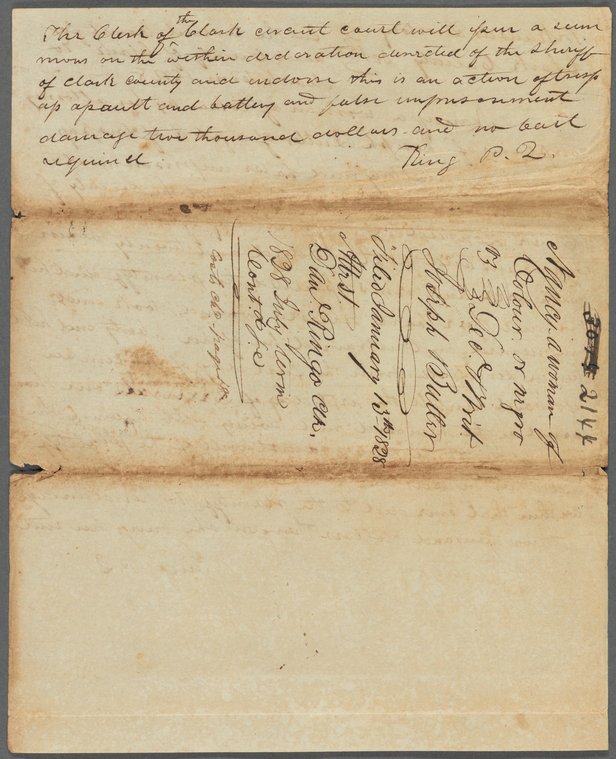 The Clerk of the Clark circuit court will issue a sum
mons on the within declaration directed of the sheriff
of Clark county and indorse this is an action of tresp
ass assault and battery and false imprisonment
damage two thousand dollars and no bail
required King P. Q.
2144
Nancy a woman of
Colour or negro
vs Dec. & Writ
Joseph Butler
Filed January 13th 1828
Attest
Dan. Ringo Clk.
1828 July term
Cont. of c